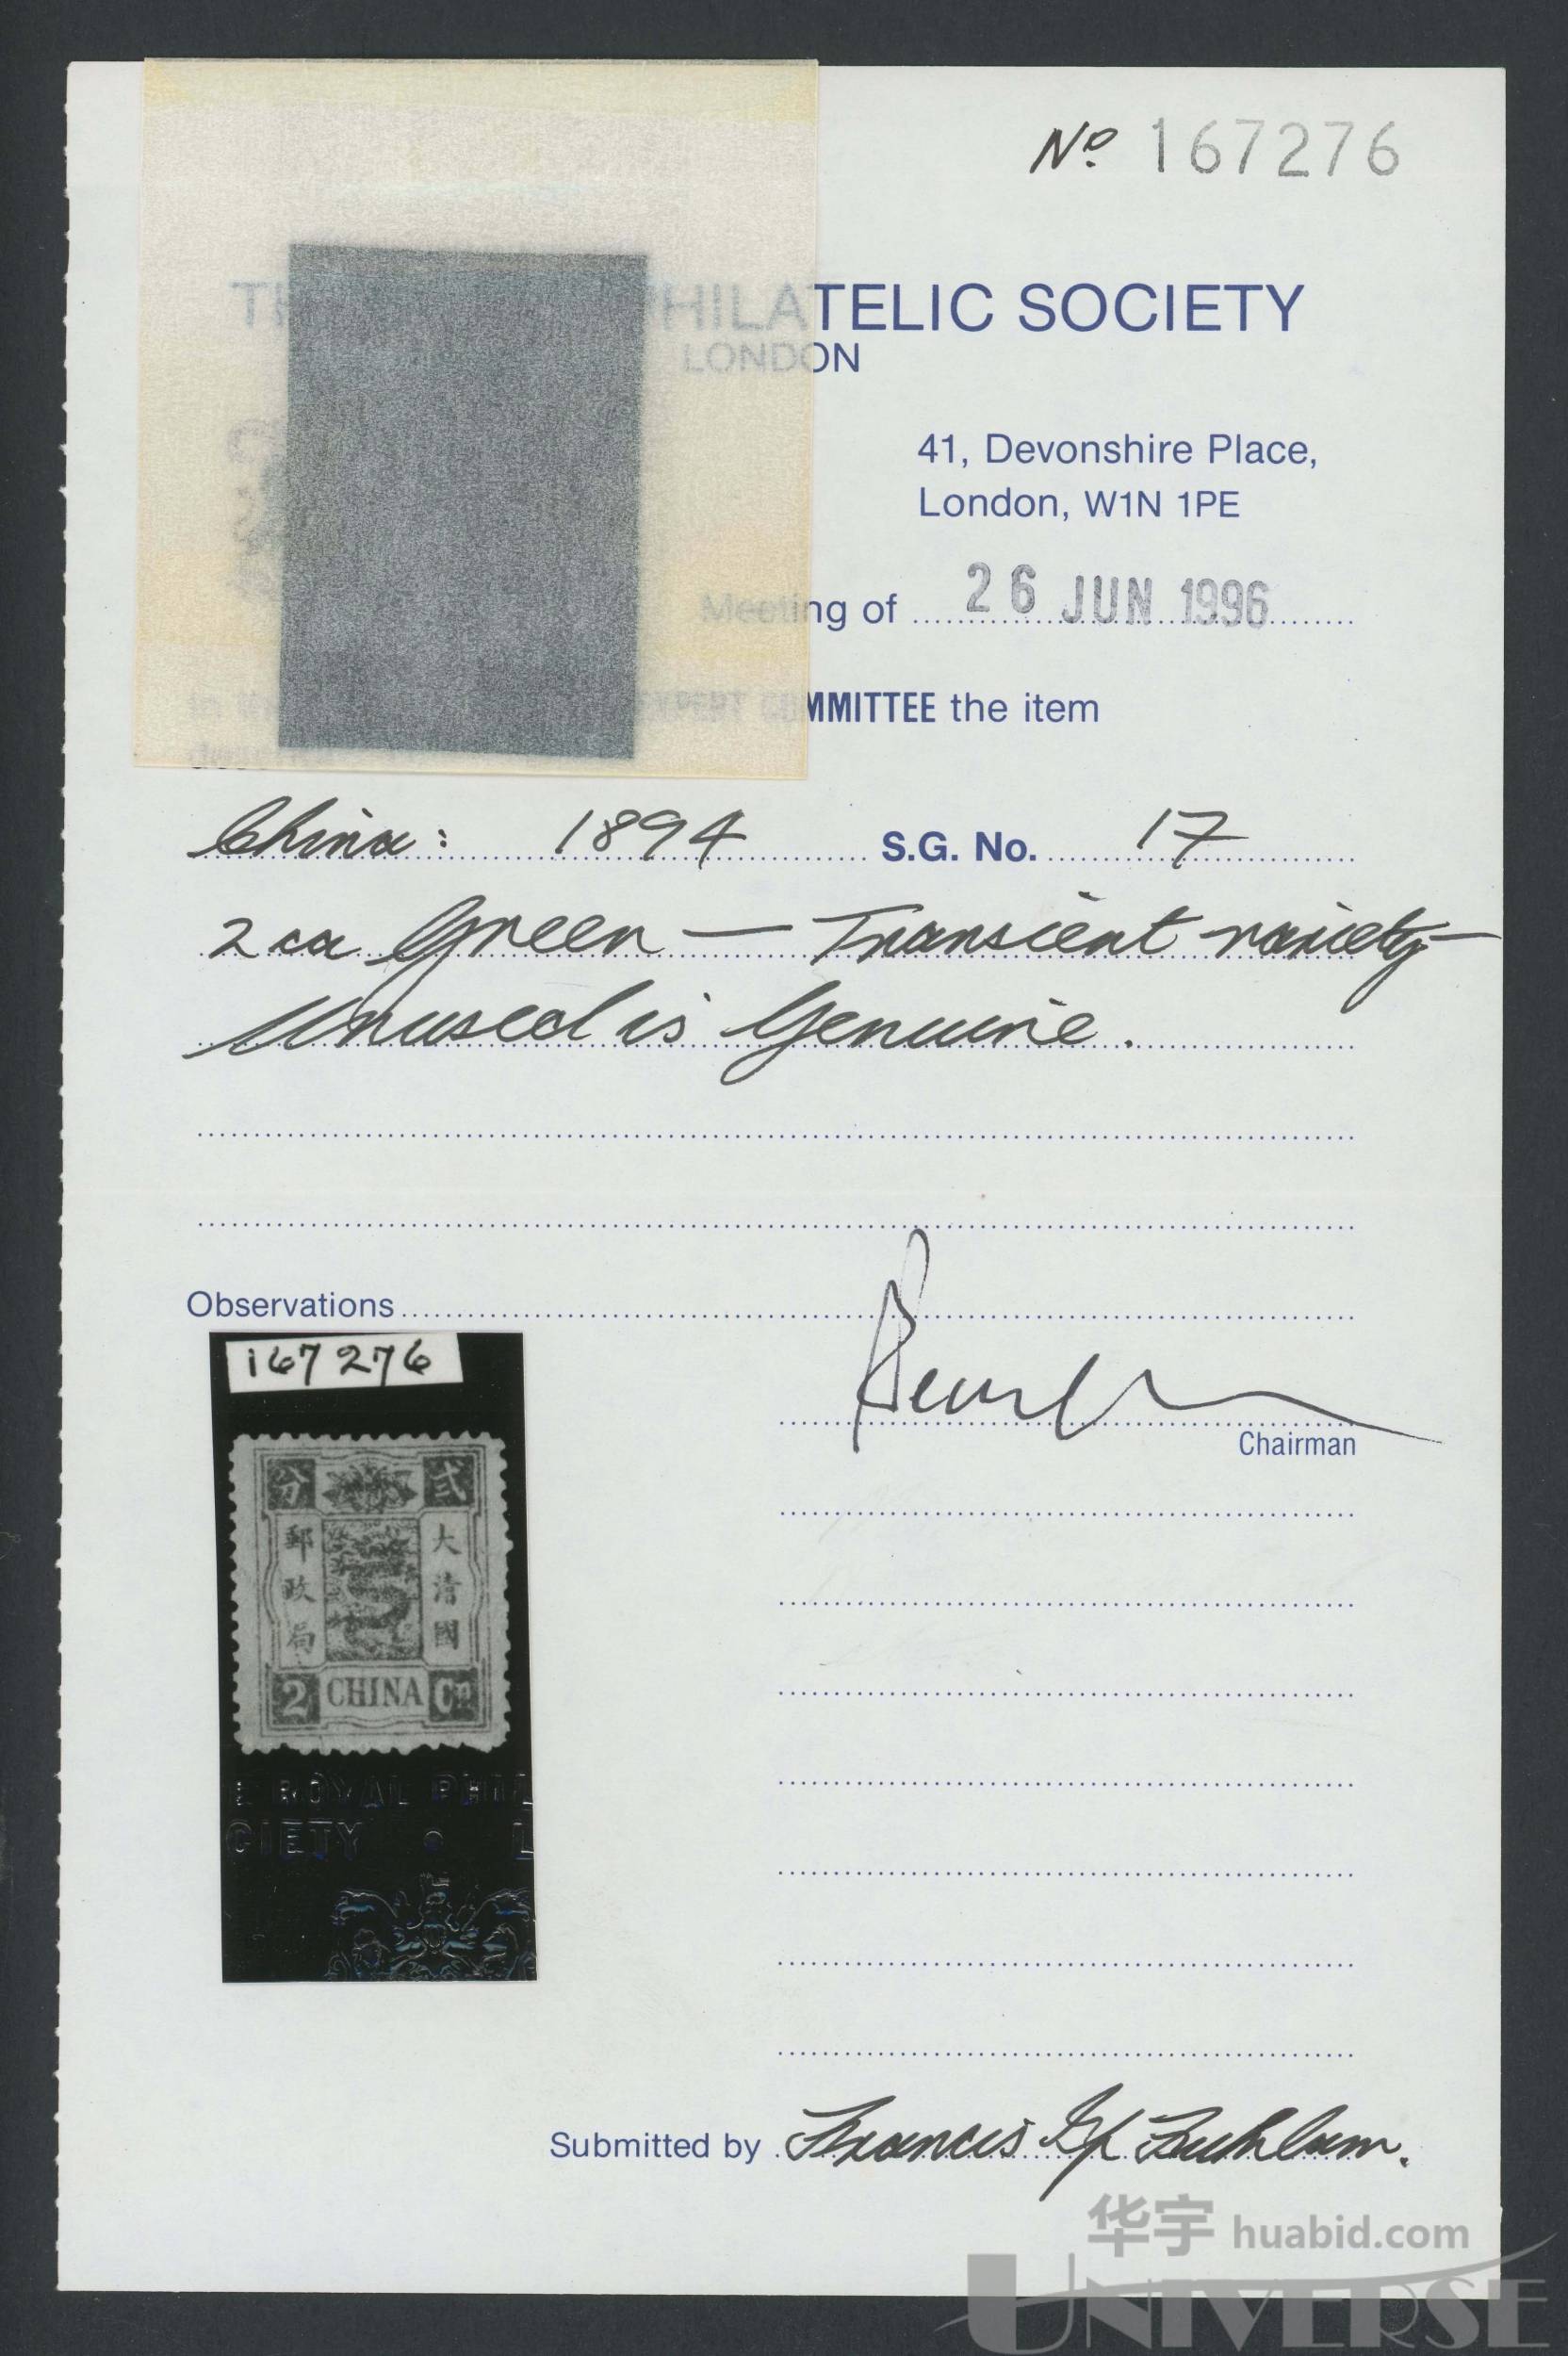 Nº 167276
PHILATELIC SOCIETY
LONDON
41, Devonshire Place,
London, W1N 1PE
Meeting of 26 JUN 1996
EXPERT COMMITTEE the item
China: 1894 S.G. No. 17
2 ca Green — Transient variety —
Unused is Genuine.
Observations
167276
分 貳
郵政局 大清國
2 CHINA Cn
E ROYAL PHIL
CIETY • L
Chairman
Submitted by Francis
华宇 huabid.com
UNIVERSE